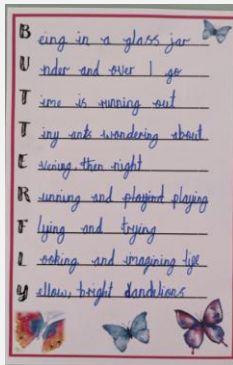 Being in a glass jar
Under and over I go
Time is running out
Tiny ants wondering about
Evening, then night
Running and playind playing
Flying and trying
Looking and imagining life
Yellow, bright dandelions